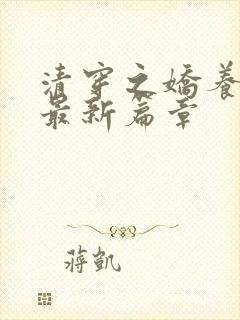 清穿之嬌養
最新篇章
蔣凱